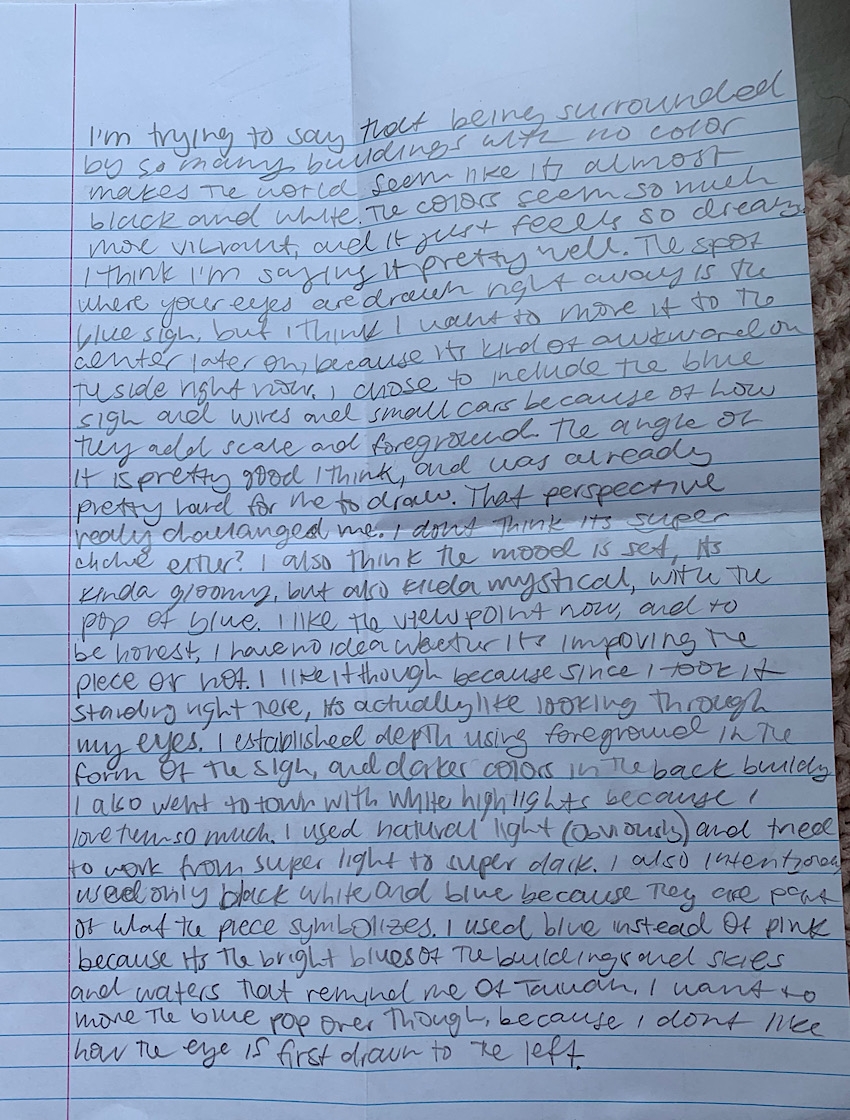 I'm trying to say that being surrounded
by so many buildings with no color
makes the world seem like its almost
black and white. The colors seem so much
more vibrant, and it just feels so dreary.
I think I'm saying it pretty well. The spot
where your eyes are drawn right away is the
blue sign, but I think I want to move it to the
center later on, because its kind of awkward on
the side right now. I chose to include the blue
sign and wires and small cars because of how
they add scale and foreground. The angle of
it is pretty good I think, and was already
pretty hard for me to draw. That perspective
really challanged me. I dont think its super
cliché either? I also think the mood is set, its
kinda gloomy, but also kinda mystical, with the
pop of blue. I like the viewpoint now, and to
be honest, I have no idea whether its impoving the
piece or not. I like it though because since I took it
standing right here, its actually like looking through
my eyes. I established depth using foreground in the
form of the sign, and darker colors in the back building
I also went to town with white highlights because I
love them so much. I used natural light (obviously) and tried
to work from super light to super dark. I also intentionally
used only black white and blue because they are part
of what the piece symbolizes. I used blue instead of pink
because its the bright blues of the buildings and skies
and waters that remind me of Taiwan. I want to
move the blue pop over though, because I dont like
how the eye is first drawn to the left.